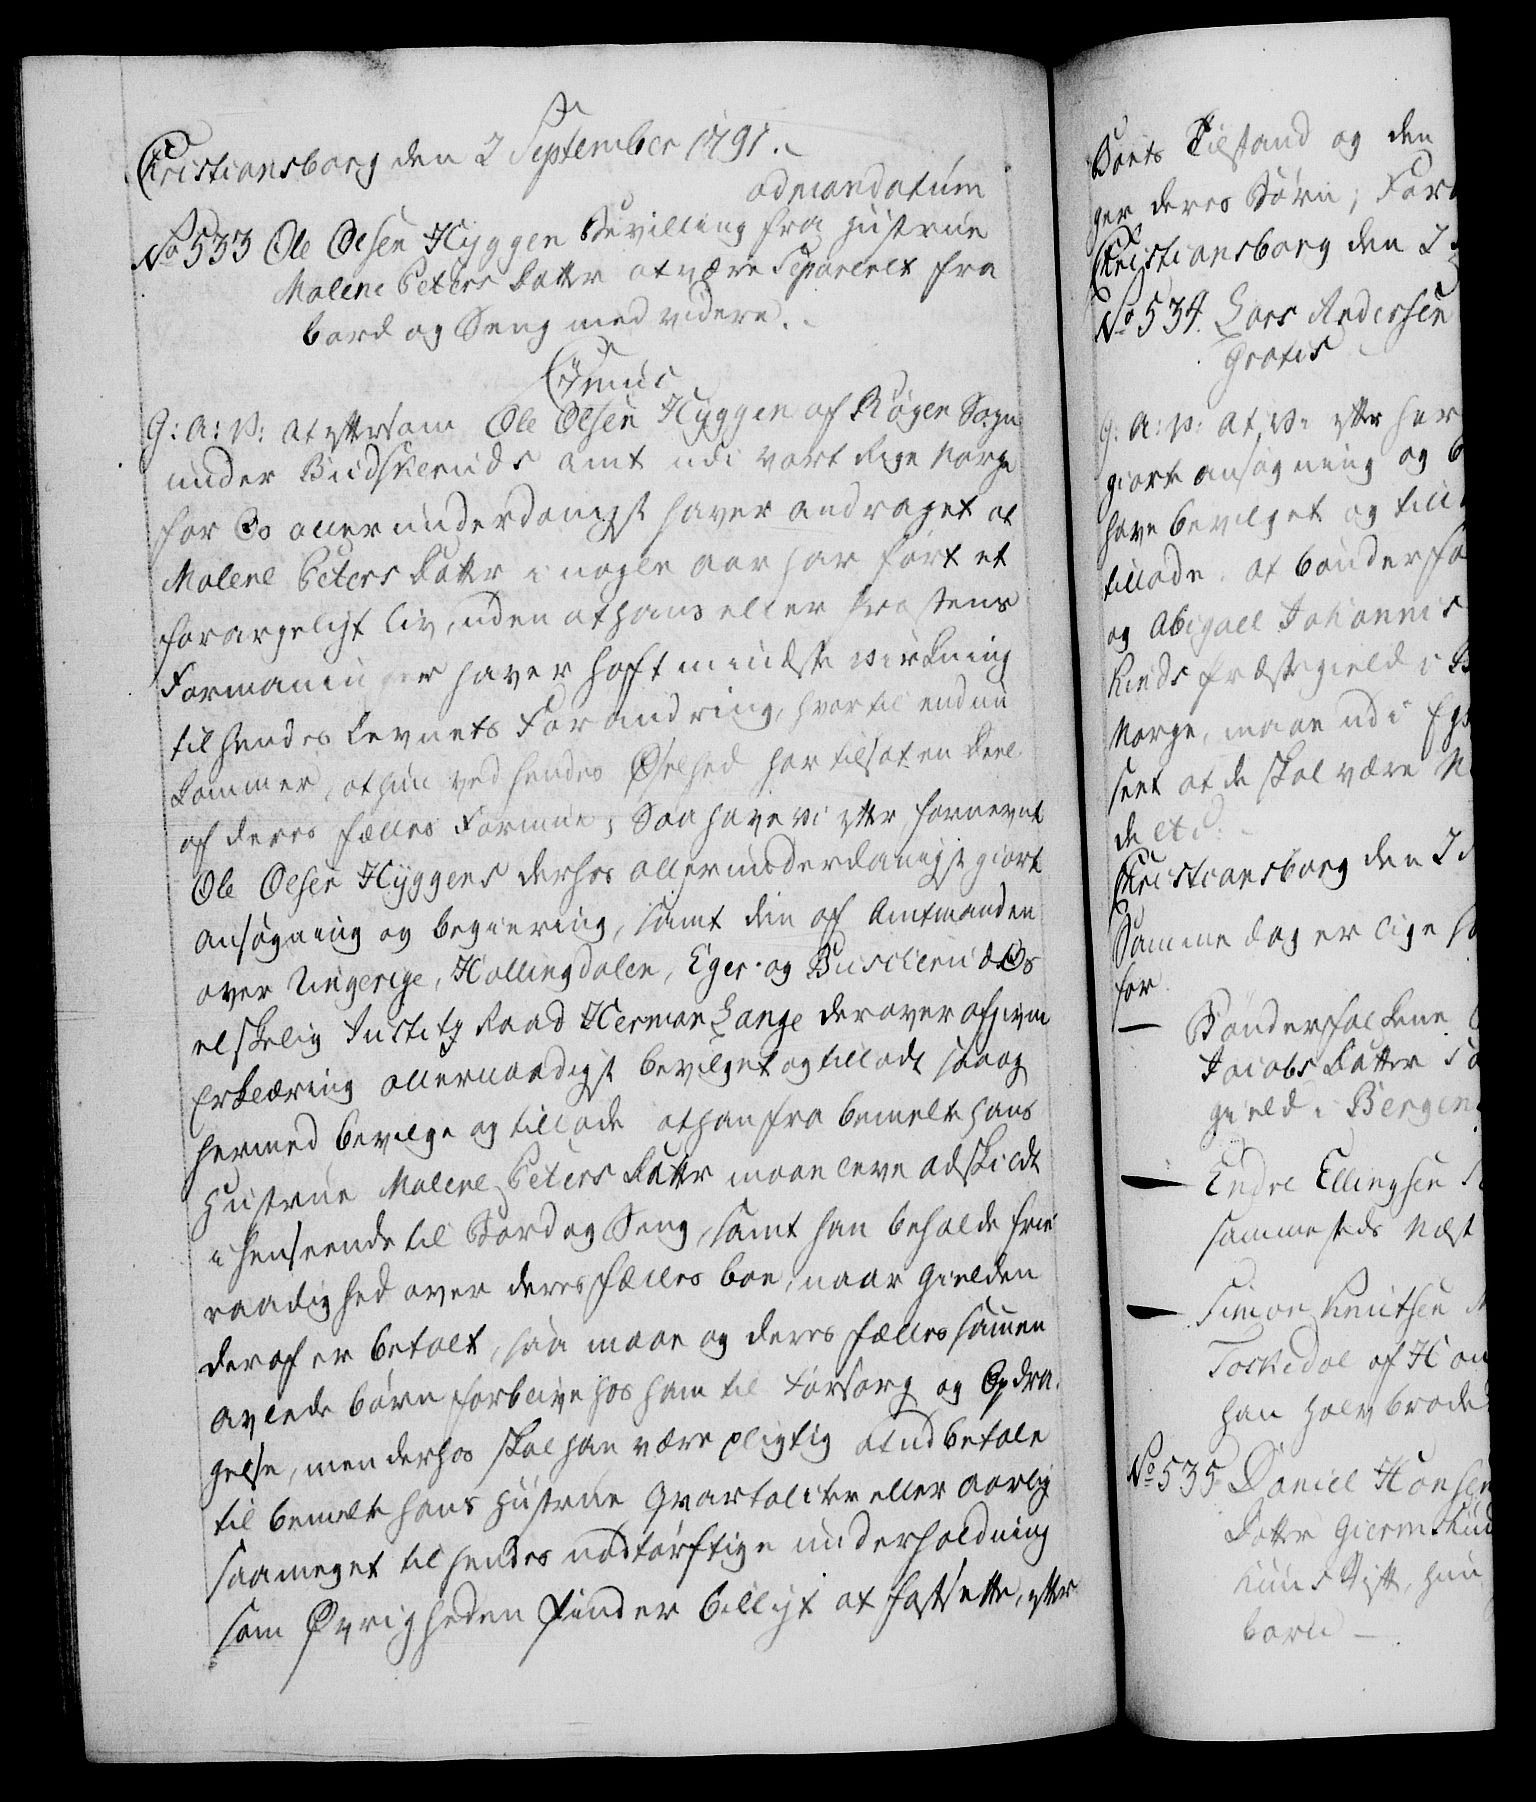 Christiansborg den 2 September 1791.
ad mandatum
No 533 Ole Olsen Hyggen Bevilling fra Hustrue
Malene Peters Datter at være Separeret fra
bord og Seng med videre.
Gratis
G: A: V: At efftersom Ole Olsen Hyggen af Røgen Sogn
under Budskeruds Amt udi vort Rige Norge
for Os allerunderdanigst haver andraget at
Malene Peters Datter i nogle Aar har ført et
forargeligt Liv, uden at hans eller Præstens
Formaninger haver hafft mindste Virkning
til hendes Levnets Forandring, hvortil endnu
kommer, at hun ved hendes Ødselhed har tilsat en Deel
af deres fælles Formue; Saa have Vi effter fornevnte
Ole Olsen Hyggens derhos allerunderdanigst giorte
Ansøgning og begiering, samt den af Amtmanden
over Ringerige, Hallingdalen, Eger og Buscherud Os
elskelig Justitz Raad Herman Lange derover afgivne
Erklæring allernaadigst bevilget og tilladt saa og
hermed bevilge og tillade at han fra bemelte hans
Hustrue Malene Peters Datter maae leve adskildt
i henseende til Bord og Seng, samt han beholde frie
raadighed over deres fælles boe, naar Gielden
deraf er betalt, saa maae og deres fælles sammen
avlede børn forblive hos ham til Forsorg og Opdra-
gelse, men derhos skal han være pligtig at udbetale
til bemelte hans Hustrue Qvartaliter eller aarlig
saameget til hendes nødtørftige underholdning
som Øvrigheden finder billigt at fastsette, effter
Boets Tilstand og den
ger deres Børn; For
Christiansborg den 2
No 534. Lars Andersen
Gratis
G: A: V: At Vi effter her
giorte ansøgning og b
have bevilget og till
tillade, at bonderfo
og Abigael Johannis
Kinds Præstegield i B
Norge, maae udi Egt
seet at de skal være N
de etc:
Christiansborg den 2
Samme dag er lige
for
— Bonderfolkene
Jacobs Datter
gield i Bergen
— Endre Ellingsen
sammesteds Næst
— Simon Knutsen
Toskedal af Ho
han halv brode
No 535 Daniel Hansen
Datter
hun
børn —